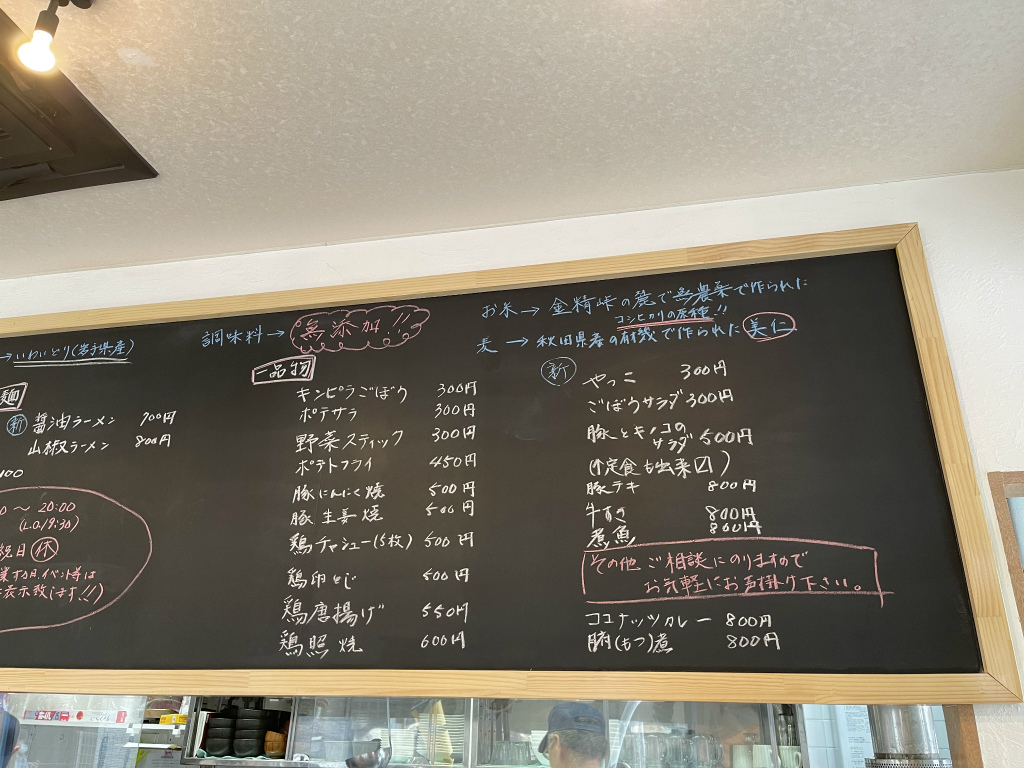 →いわいどり(岩手県産)
麺
新 醤油ラーメン 700円
山椒ラーメン 800円
100
0 ～ 20:00
(L.O.19:30)
日 休
業する日、イベント等は
表示致します!!)
調味料→ 無添加!!
一品物
キンピラごぼう 300円
ポテサラ 300円
野菜スティック 300円
ポテトフライ 450円
豚にんにく焼 500円
豚生姜焼 500円
鶏チャシュー(5枚) 500円
鶏卵とじ 500円
鶏唐揚げ 550円
鶏照焼 600円
お米→ 金時峠の麓で無農薬で作られた
コシヒカリの原種!!
麦 → 秋田県産の有機で作られた 美仁
新
やっこ 300円
ごぼうサラダ 300円
豚とキノコの
サラダ 500円
(作定食も出来〼)
豚テキ 800円
牛すき 800円
煮魚 800円
その他 ご相談にのりますので
お気軽にお声掛け下さい。
ココナッツカレー 800円
腑(もつ)煮 800円